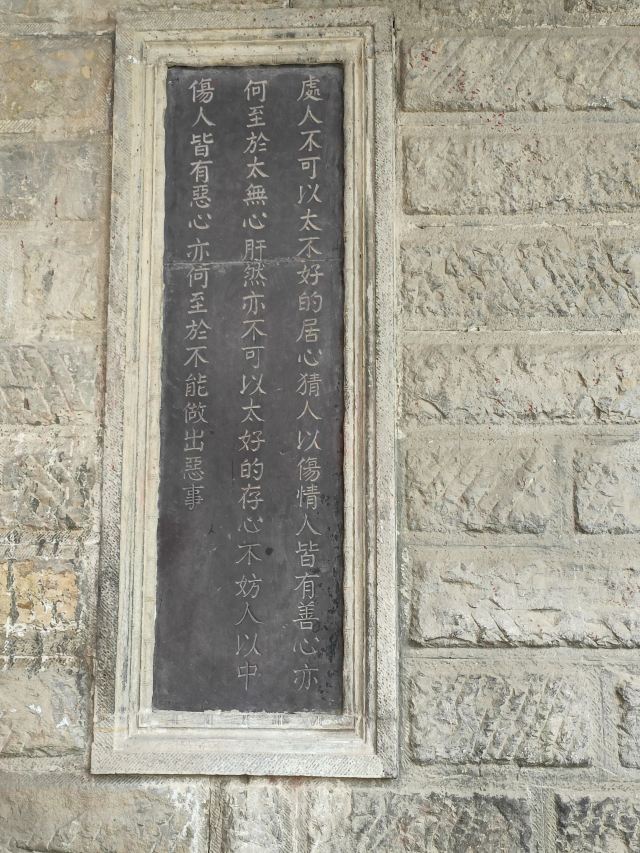 處人不可以太不好的居心猜人以傷情人皆有善心亦
何至於太無心肝然亦不可以太好的存心不妨人以中
傷人皆有惡心亦何至於不能做出惡事